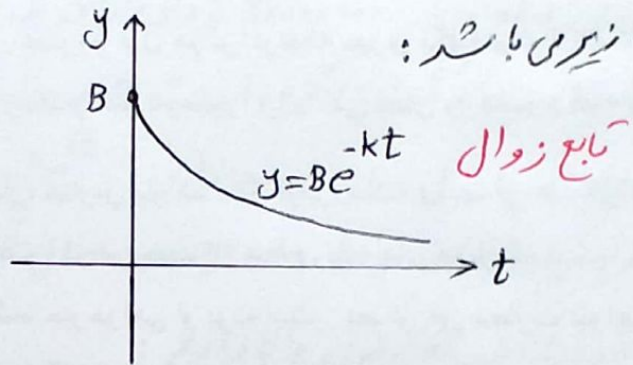 زیر می باشد :
تابع زوال
y
B
y=Be^{-kt}
t